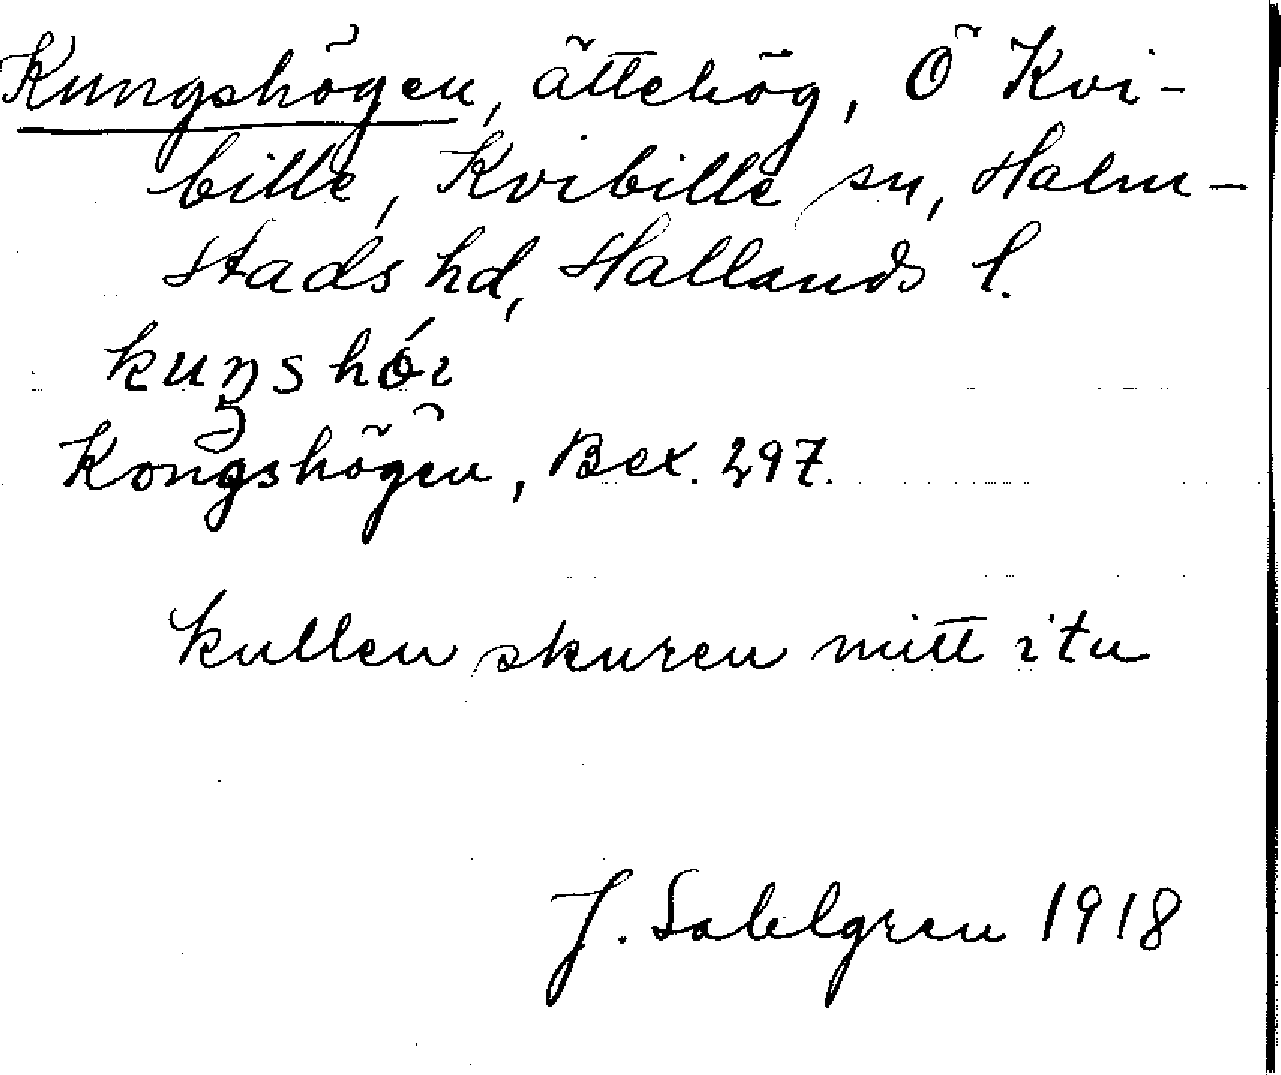 Kungshögen, ättehög, Ö Kvi-
bille, Kvibille sn, Halm-
stads hd, Hallands l.
Kongshögen, Bex. 297.
kullen skuren mitt itu
J. Sahlgren 1918